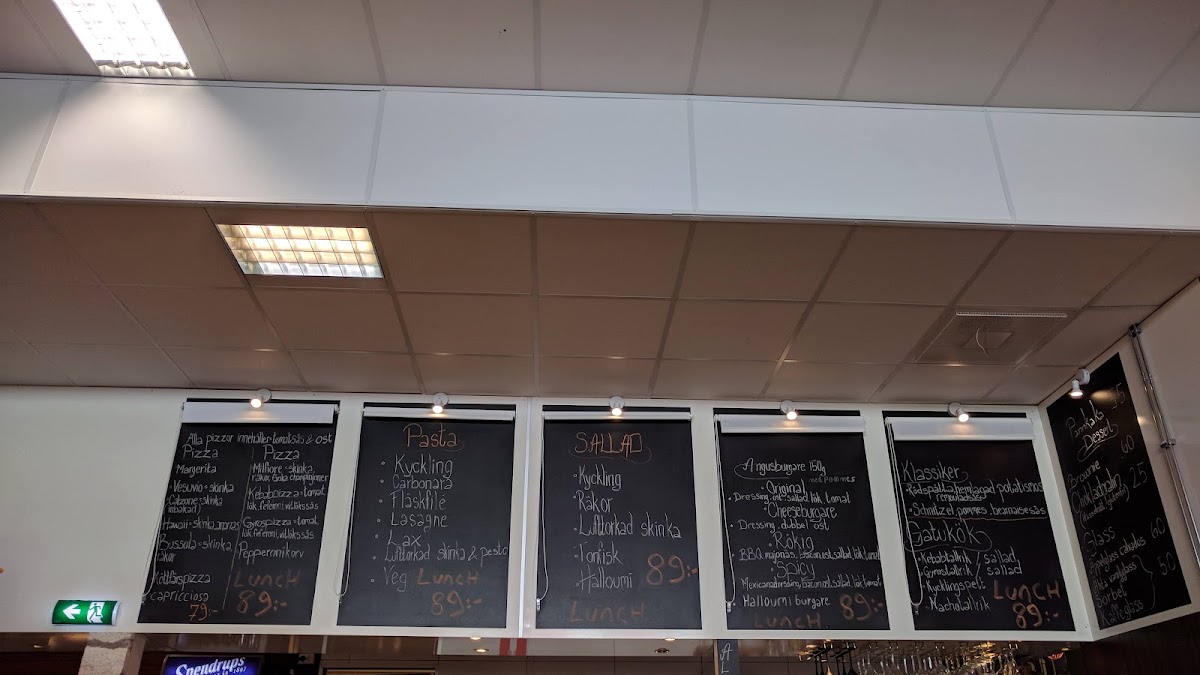 Alla pizzor innehåller tomatsås & ost
Pizza
Margerita
Vesuvio=skinka
Calzone=skinka
(inbakad)
Hawaii=skinka, ananas
Bussola=skinka,
räkor
Köttfärspizza
capricciosa
79:-
Pizza
Milfiore=skinka,
räkor, färska champinjoner
Kebabpizza=tomat,
lök, feferoni, vitlökssås
Gyrospizza=tomat,
lök, feferoni, vitlökssås
Pepperonikorv
LUNCH
89:-
Pasta
• Kyckling
• Carbonara
• Fläskfilé
• Lasagne
• Lax
• Lufttorkad skinka & pesto
• Veg
LUNCH
89:-
SALLAD
• Kyckling
• Räkor
• Lufttorkad skinka
• Tonfisk
• Halloumi
89:-
LUNCH
Angusburgare 150g
med pommes
• Original
Dressing, ost, sallad, lök, tomat
• Cheeseburgare
Dressing, dubbel ost
• Rökig
BBQ, majonäs, bacon, ost, sallad, lök, tomat
• Spicy
Mexicanadressing, bacon, ost, sallad, lök, tomat
• Halloumi burgare
89:-
LUNCH
Klassiker
• Rödspätta, hemlagad potatismos
remouladsås
• Schnitzel, pommes, bearnaisesås
Gatukök
• Kebabtallrik / sallad
• Gyrostallrik / sallad
• Kycklingspett
• Nachotallrik
LUNCH
89:-
Pannkaka
Dessert
Brownie 60
25
Glass
60
Sorbet 50
Kaffe glass
Spendrups
1897